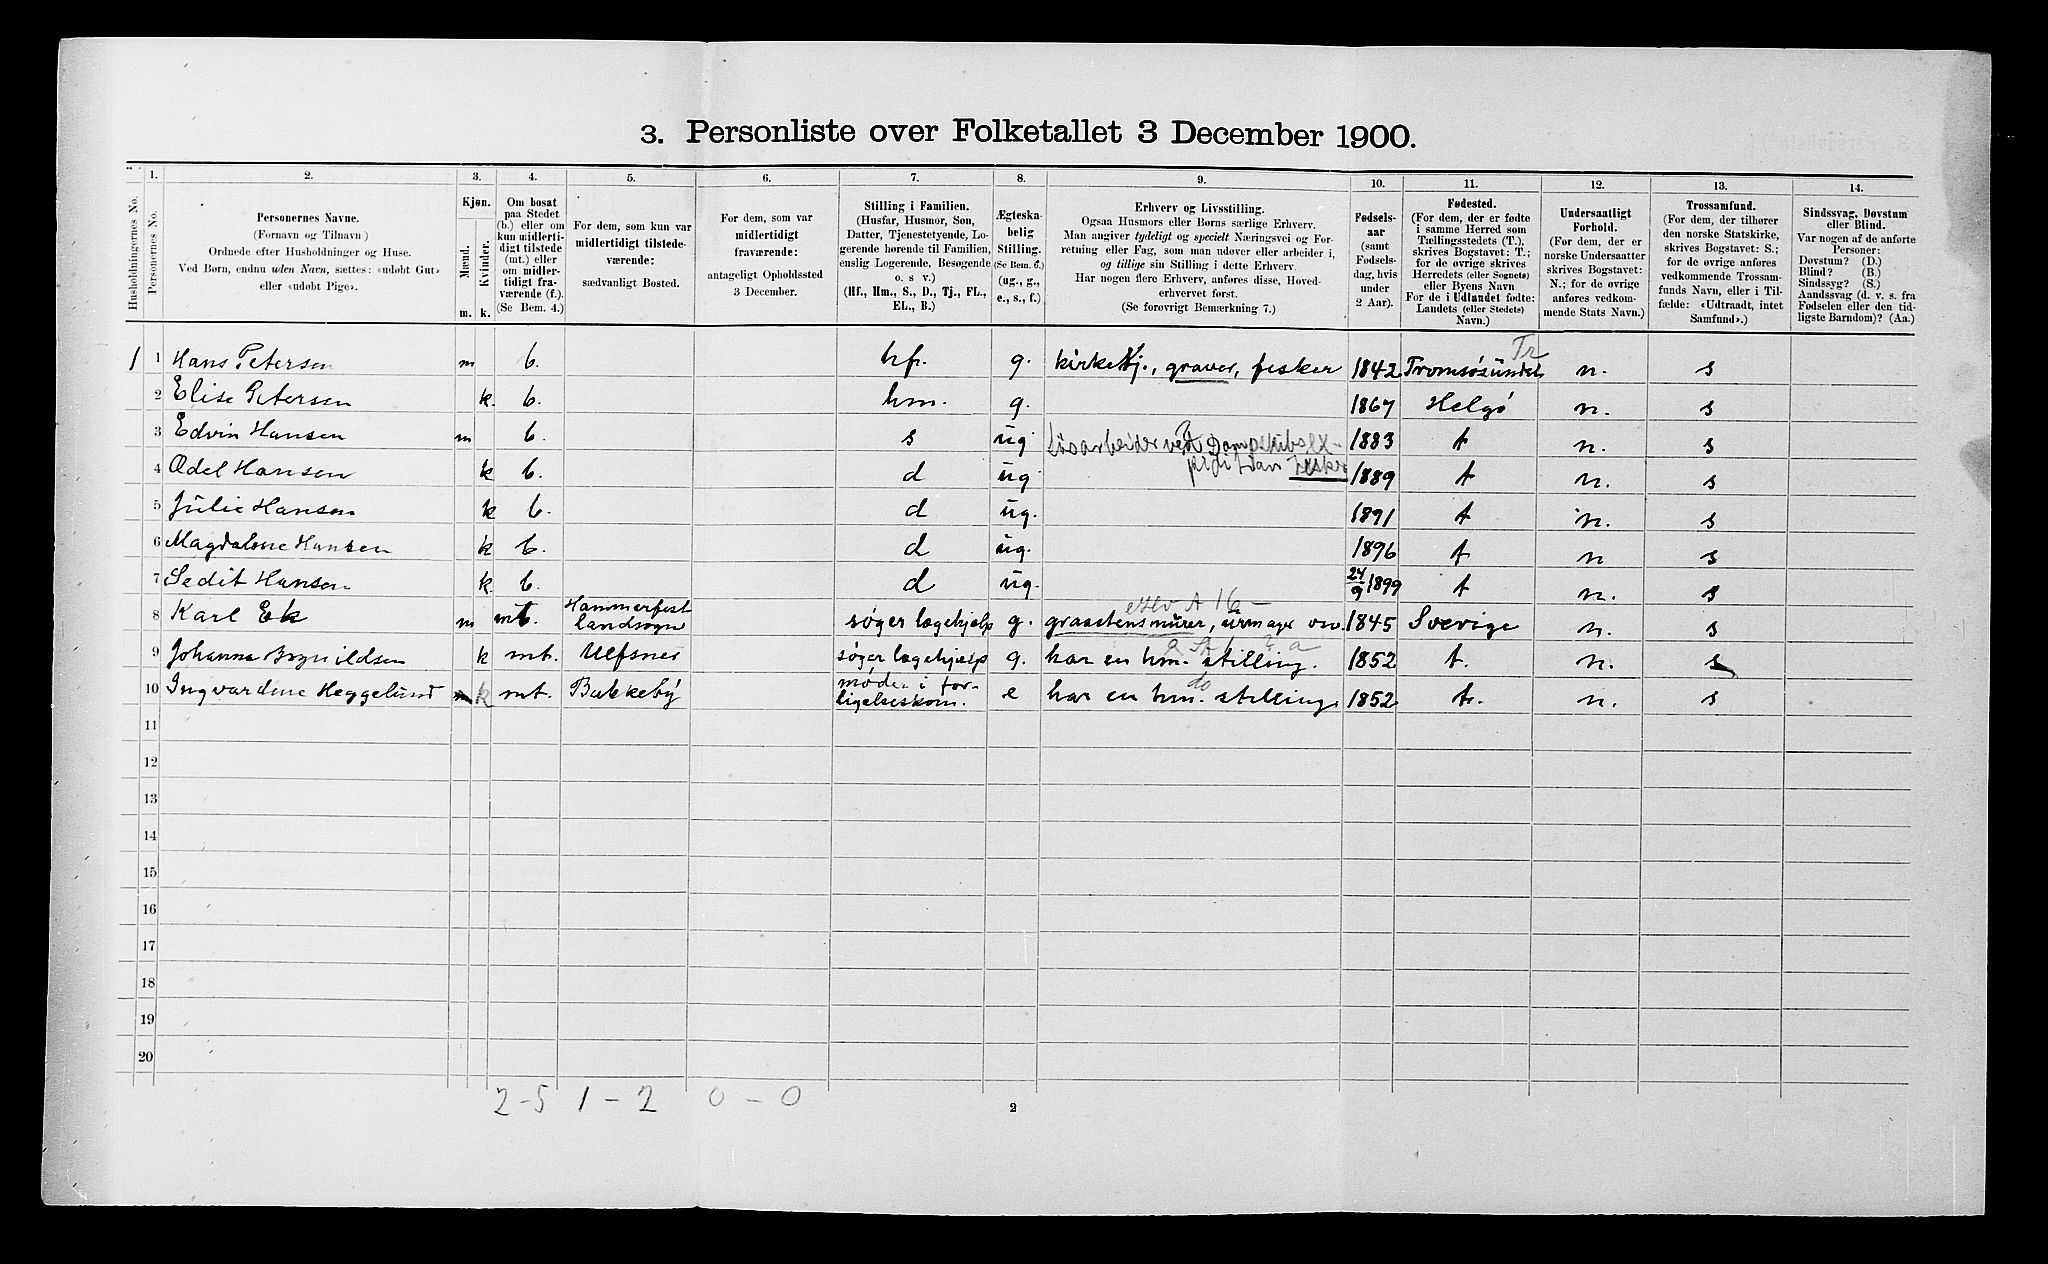 3. Personliste over Folketallet 3 December 1900.
Husholdningernes No.
1.
Personernes No.
2.
Personernes Navne.
(Fornavn og Tilnavn)
Ordnede efter Husholdninger og Huse.
Ved Børn, endnu uden Navn, sættes: «udøbt Gut»
eller «udøbt Pige».
3.
Kjøn.
Mænd.
Kvinder.
m. k.
4.
Om bosat
paa Stedet
(b.) eller om
kun midlerti-
digt tilstede
(mt.) eller
om midler-
tidigt fra-
værende (f.).
(Se Bem. 4.)
5.
For dem, som kun var
midlertidigt tilstede-
værende:
sædvanligt Bosted.
6.
For dem, som var
midlertidigt
fraværende:
antageligt Opholdssted
3 December.
7.
Stilling i Familien.
(Husfar, Husmor, Søn,
Datter, Tjenestetyende, Lo-
gerende hørende til Familien,
enslig Logerende, Besøgende
o. s v.)
(Hf., Hm., S., D., Tj., FL.,
EL., B.)
8.
Ægteska-
belig
Stilling.
(Se Bem. 6.)
(ug., g.,
e., s., f.)
9.
Erhverv og Livsstilling.
Ogsaa Husmors eller Børns særlige Erhverv.
Man angiver tydeligt og specielt Næringsvei og For-
retning eller Fag, som man udøver eller arbeider i,
og tillige sin Stilling i dette Erhverv.
Har nogen flere Erhverv, anføres disse, Hoved-
erhvervet først.
(Se forøvrigt Bemærkning 7.)
10.
Fødsels-
aar
(samt
Fødsels-
dag, hvis
under
2 Aar).
11.
Fødested.
(For dem, der er fødte
i samme Herred som
Tællingsstedets (T.),
skrives Bogstavet: T.;
for de øvrige skrives
Herredets (eller Sognets)
eller Byens Navn
For de i Udlandet fødte:
Landets (eller Stedets)
Navn.)
12.
Undersaatligt
Forhold.
(For dem, der er
norske Undersaatter
skrives Bogstavet:
N.; for de øvrige
anføres vedkom-
mende Stats Navn.)
13.
Trossamfund.
(For dem, der tilhører
den norske Statskirke,
skrives Bogstavet: S.;
for de øvrige anføres
vedkommende Trossam-
funds Navn, eller i Til-
fælde: «Udtraadt, intet
Samfund».)
14.
Sindssvag, Døvstum
eller Blind.
Var nogen af de anførte
Personer:
Døvstum? (D.)
Blind? (B.)
Sindssyg? (S.)
Aandssvag (d. v. s. fra
Fødselen eller den tid-
ligste Barndom)? (Aa.)
Tr
1 1 Hans Petersen m b. hf. g. kirketj., graver, fisker 1842 Tromsøsundet n. s
2 Elise Petersen k. b. hm. g. 1867 Helgö n. s
3 Edvin Hansen m b. s ug Løsarbeider ved Dampskibsex- 1883 t n. s
peditionen Fisker
4 Adel Hansen k b. d ug 1889 t n. s
5 Julie Hansen k b. d ug. 1891 t n. s
6 Magdalene Hansen k b. d ug. 1896 t n s
7 Sedit Hansen k. b. d ug. 24/9 1899 t n. s
Hammerfest
8 Karl Ek m mt. landsogn søger lægehjælp g. graastensmurer, urmager 1845 Sverige n. s
9 Johanna Bognildsen k mt. Ulfsnes søger lægehjælp g. har en hm. stilling. 1852 t. n. s
møder i for-
do
10 Ingvardine Heggelund k mt. Bakkeby ligelseskom. e har en hm. stilling. 1852 t. n. s
11
12
13
14
15
16
17
18
19
20
2-5 1-2 0-0
2